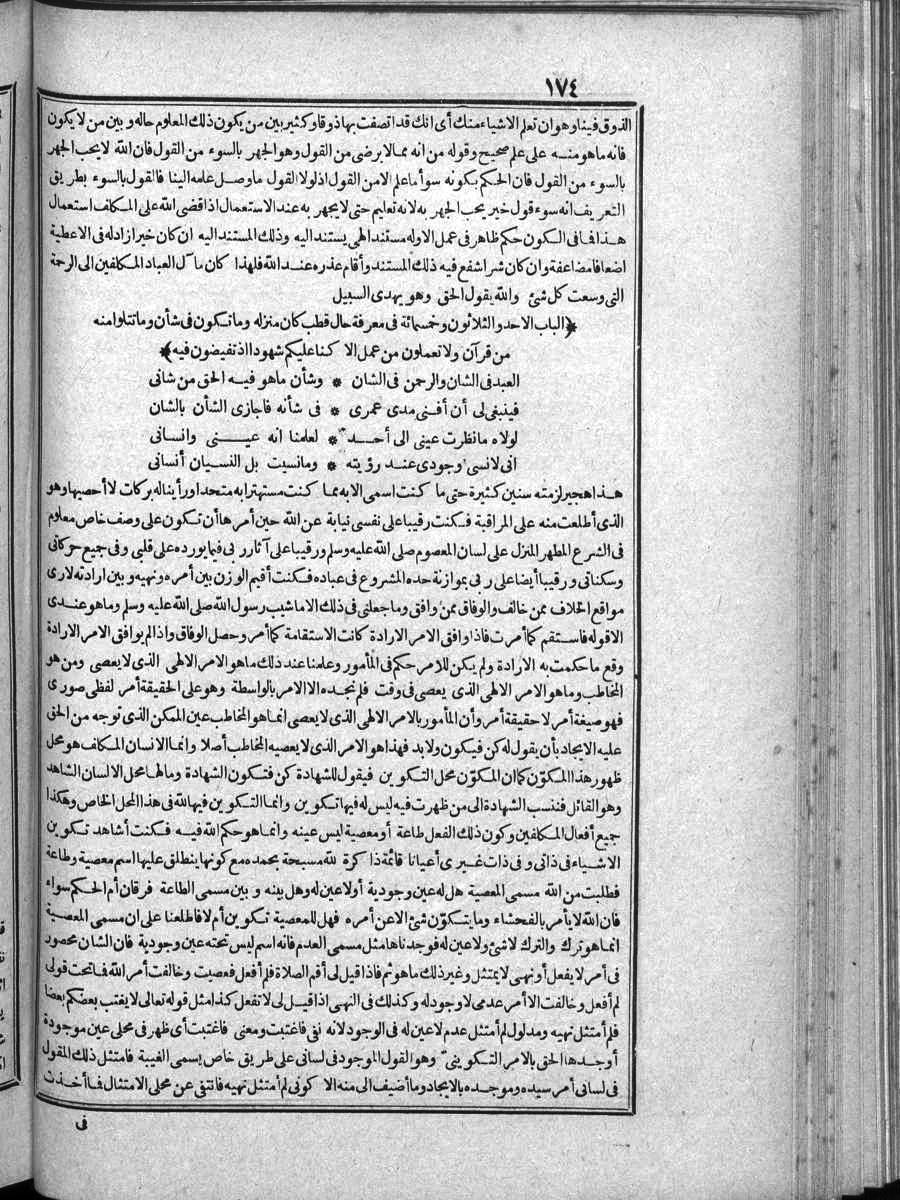 ١٧٤
الذوق فينا وهو ان تعلم الاشياء منك أى انك قد اتصفت بها ذوقا وكثير بين من يكون ذلك المعلوم حاله و بين من لا يكون
فانه ما هو منه على علم صحيح وقوله من انه مما لا يرضى من القول وهو الجهر بالسوء من القول فان الله لا يحب الجهر
بالسوء من القول فان الحكم بكونه سوأ ما علم الا من القول اذ لولا القول ما وصل علمه الينا فالقول بالسوء بطريق
التعريف انه سوء قول خير يحب الجهر به لانه تعليم حتى لا يجهر به عند الاستعمال اذا قضى الله على المكلف استعمال
هذا فما فى الكون حكم ظاهر فى عمل الاوله مستند الهى يستند اليه وذلك المستند اليه ان كان خيرا زاد له فى الاعطية
اضعافا مضاعفة وان كان شرا شفع فيه ذلك المستند وأقام عذره عند الله فلهذا كان مآل العباد المكلفين الى الرحمة
التى وسعت كل شئ والله يقول الحق وهو يهدى السبيل
﴿الباب الاحد والثلاثون وخمسمائة فى معرفة حال قطب كان منزله وما تكون فى شأن وما تتلوا منه
من قرآن ولا تعملون من عمل الا كنا عليكم شهودا اذ تفيضون فيه﴾
العبد فى الشان والرحمن فى الشان * وشأن ما هو فيه الحق من شانى
فينبغى لى أن أفنى مدى عمرى * فى شأنه فاجازى الشأن بالشان
لولاه ما نظرت عينى الى أحد * لعلمنا انه عينى وانسانى
انى لانسى وجودى عند رؤيته * وما نسيت بل النسيان أنسانى
هذا هجير لزمته سنين كثيرة حتى ما كنت اسمى الا به مما كنت مستهترا به متحدا ورأينا له بركات لا أحصيها وهو
الذى أطلعت منه على المراقبة فكنت رقيبا على نفسى نيابة عن الله حين أمرها أن تكون على وصف خاص معلوم
فى الشرع المطهر المنزل على لسان المعصوم صلى الله عليه وسلم ورقيبا على آثار ربى فيما يورده على قلبى وفى جميع حركاتى
وسكناتى ورقيبا أيضا على ربى بموازنة حده المشروع فى عباده فكنت أقيم الوزن بين أمره ونهيه وبين ارادته لارى
مواقع الخلاف ممن خالف والوفاق ممن وافق وما جعلنى فى ذلك الا ما شيب رسول الله صلى الله عليه وسلم وما هو عندى
الا قوله فاستقم كما أمرت فاذا وافق الامر الارادة كانت الاستقامة كما أمر وحصل الوفاق واذا لم يوافق الامر الارادة
وقع ما حكمت به الارادة ولم يكن للامر حكم فى المأمور وعلمنا عند ذلك ما هو الامر الالهى الذى لا يعصى ومن هو
المخاطب وما هو الامر الالهى الذى يعصى فى وقت فلم نجده الا الامر بالواسطة وهو على الحقيقة أمر لفظى صورى
فهو صيغة أمر لا حقيقة أمر وأن المأمور بالامر الالهى الذى لا يعصى انما هو المخاطب عين الممكن الذى توجه من الحق
عليه الايجاد بأن يقول له كن فيكون ولا بد فهذا هو الامر الذى لا يعصيه المخاطب أصلا وانما الانسان المكلف هو محل
ظهور هذا المكوّن كما ان المكوّن محل التكوين فيقول للشهادة كن فتكون الشهادة وما لها محل الا لسان الشاهد
وهو القائل فننسب الشهادة الى من ظهرت فيه ليس له فيها تكوين وانما التكوين فيها لله فى هذا المحل الخاص وهكذا
جميع أفعال المكلفين وكون ذلك الفعل طاعة أو معصية ليس عينه وانما هو حكم الله فيه فكنت أشاهد تكوين
الاشياء فى ذاتى وفى ذات غيرى أعيانا قائمة ذاكرة لله مسبحة بحمده مع كونها ينطلق عليها اسم معصية وطاعة
فطلبت من الله مسمى المعصية هل له عين وجودية أو لا عين له وهل بينه وبين مسمى الطاعة فرقان أم الحكم سواء
فان الله لا يأمر بالفحشاء وما يتكوّن شئ الا عن أمره فهل للمعصية تكوين أم لا فاطلعنا على ان مسمى المعصية
انما هو ترك والترك لا شئ ولا عين له فوجدناها مثل مسمى العدم فانه اسم ليس تحته عين وجودية فان الشان محصور
فى أمر لا يفعل أو نهى لا يمتثل وغير ذلك ما هو ثم فاذا قيل لى أقم الصلاة فلم أفعل فعصيت وخالفت أمر الله فما تحت قولى
لم أفعل وخالفت الا أمر عدمى لا وجود له وكذلك فى النهى اذا قيل لى لا تفعل كذا مثل قوله تعالى لا يغتب بعضكم بعضا
فلم أمتثل نهيه ومدلول لم أمتثل عدم لا عين له فى الوجود لانه نفى فاغتبت ومعنى فاغتبت أى ظهر فى محلى عين موجودة
أوجدها الحق بالامر التكوينى وهو القول الموجود فى لسانى على طريق خاص يسمى الغيبة فامتثل ذلك المقول
فى لسانى أمر سيده وموجده بالايجاد وما أضيف الى منه الا كونى لم أمتثل نهيه فانتفى عن محلى الامتثال فما أخذت
فى